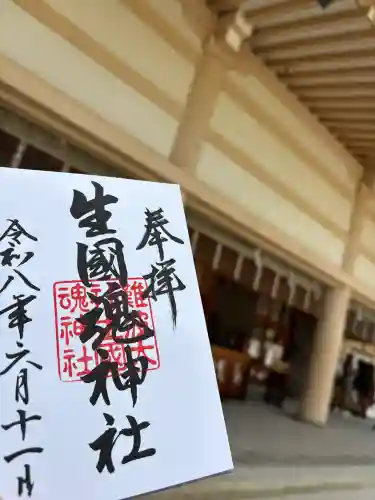 奉拝
生國魂神社
難波大
魂神社
令和八年六月十一日